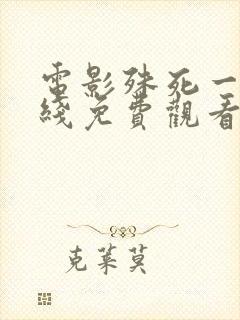 電影殊死一
綫免費觀看
克萊莫